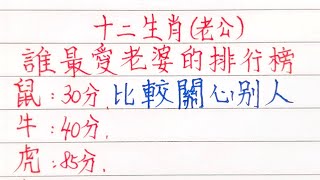 十二生肖(老公)
誰最愛老婆的排行榜
鼠:30分.比較關心別人
牛:40分.
虎:85分.